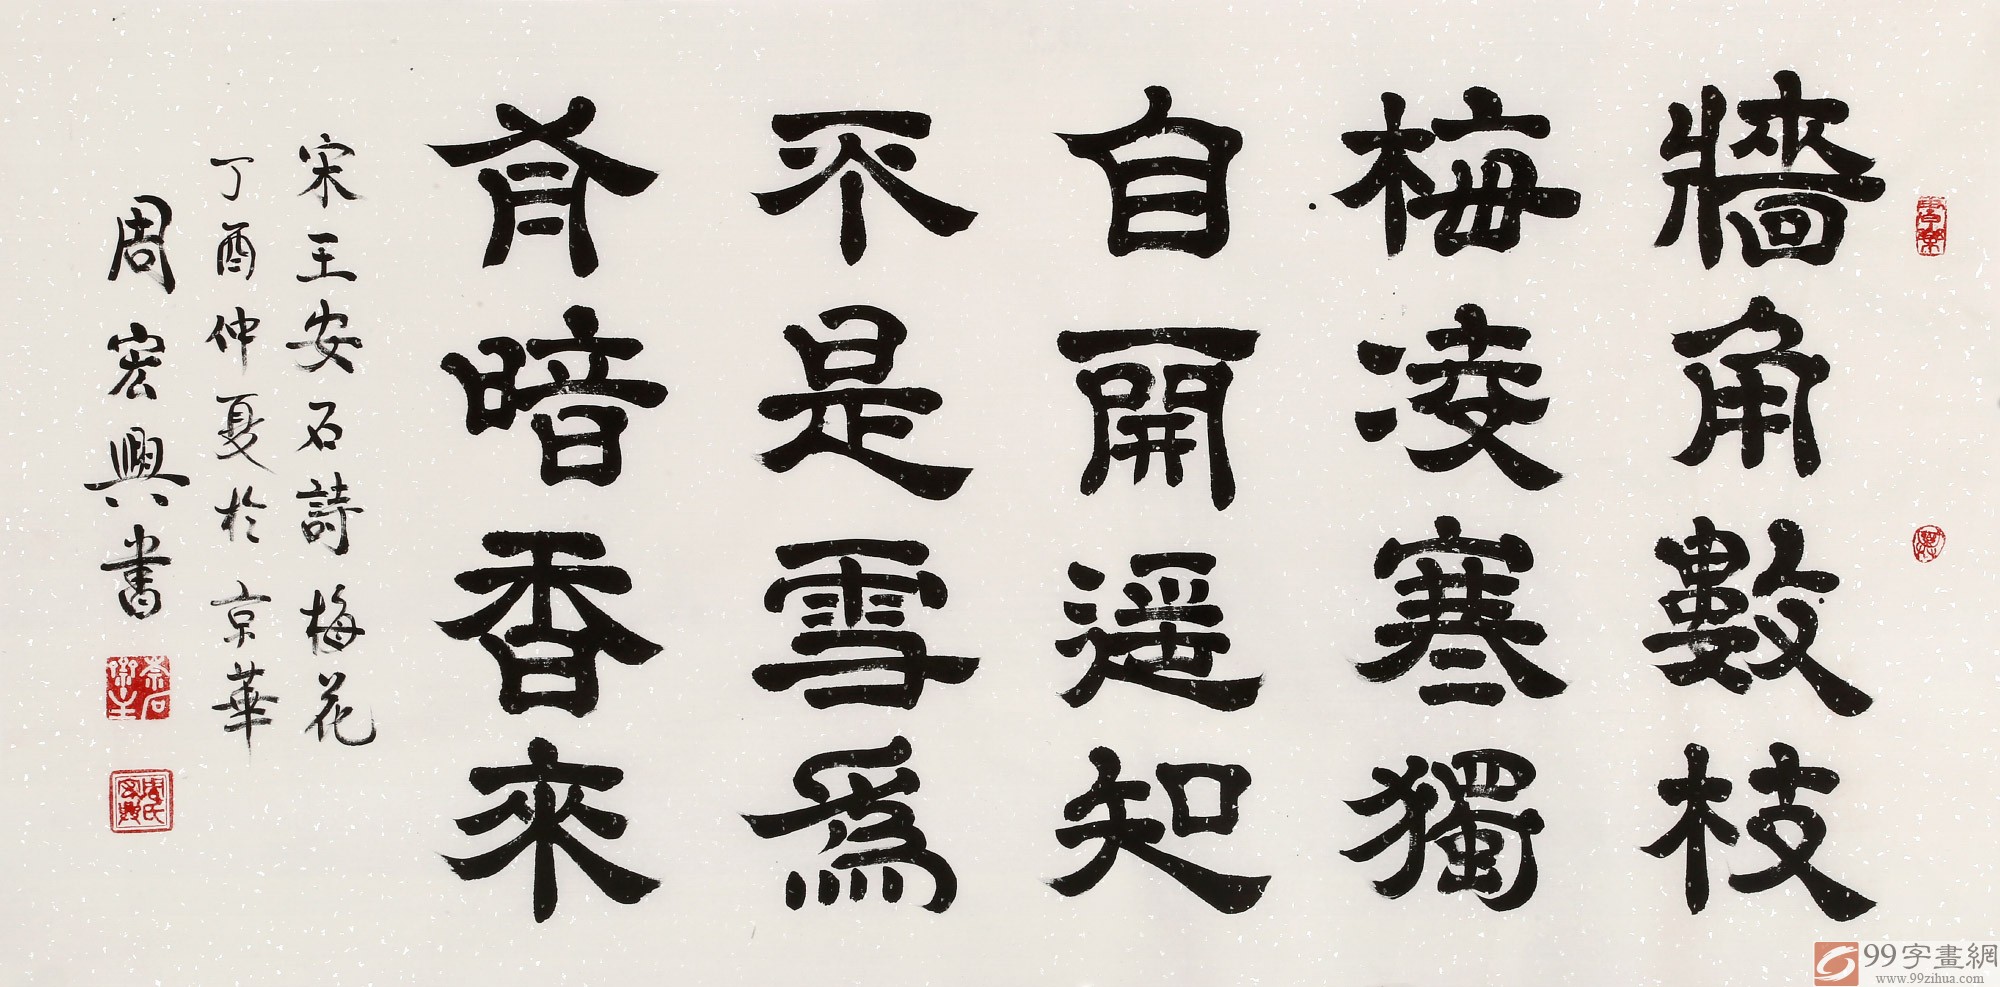 牆角數枝
梅凌寒獨
自開遥知
不是雪爲
有暗香來
宋王安石詩梅花
丁酉仲夏於京華
周宏興書
99字畫網
www.99zihua.com